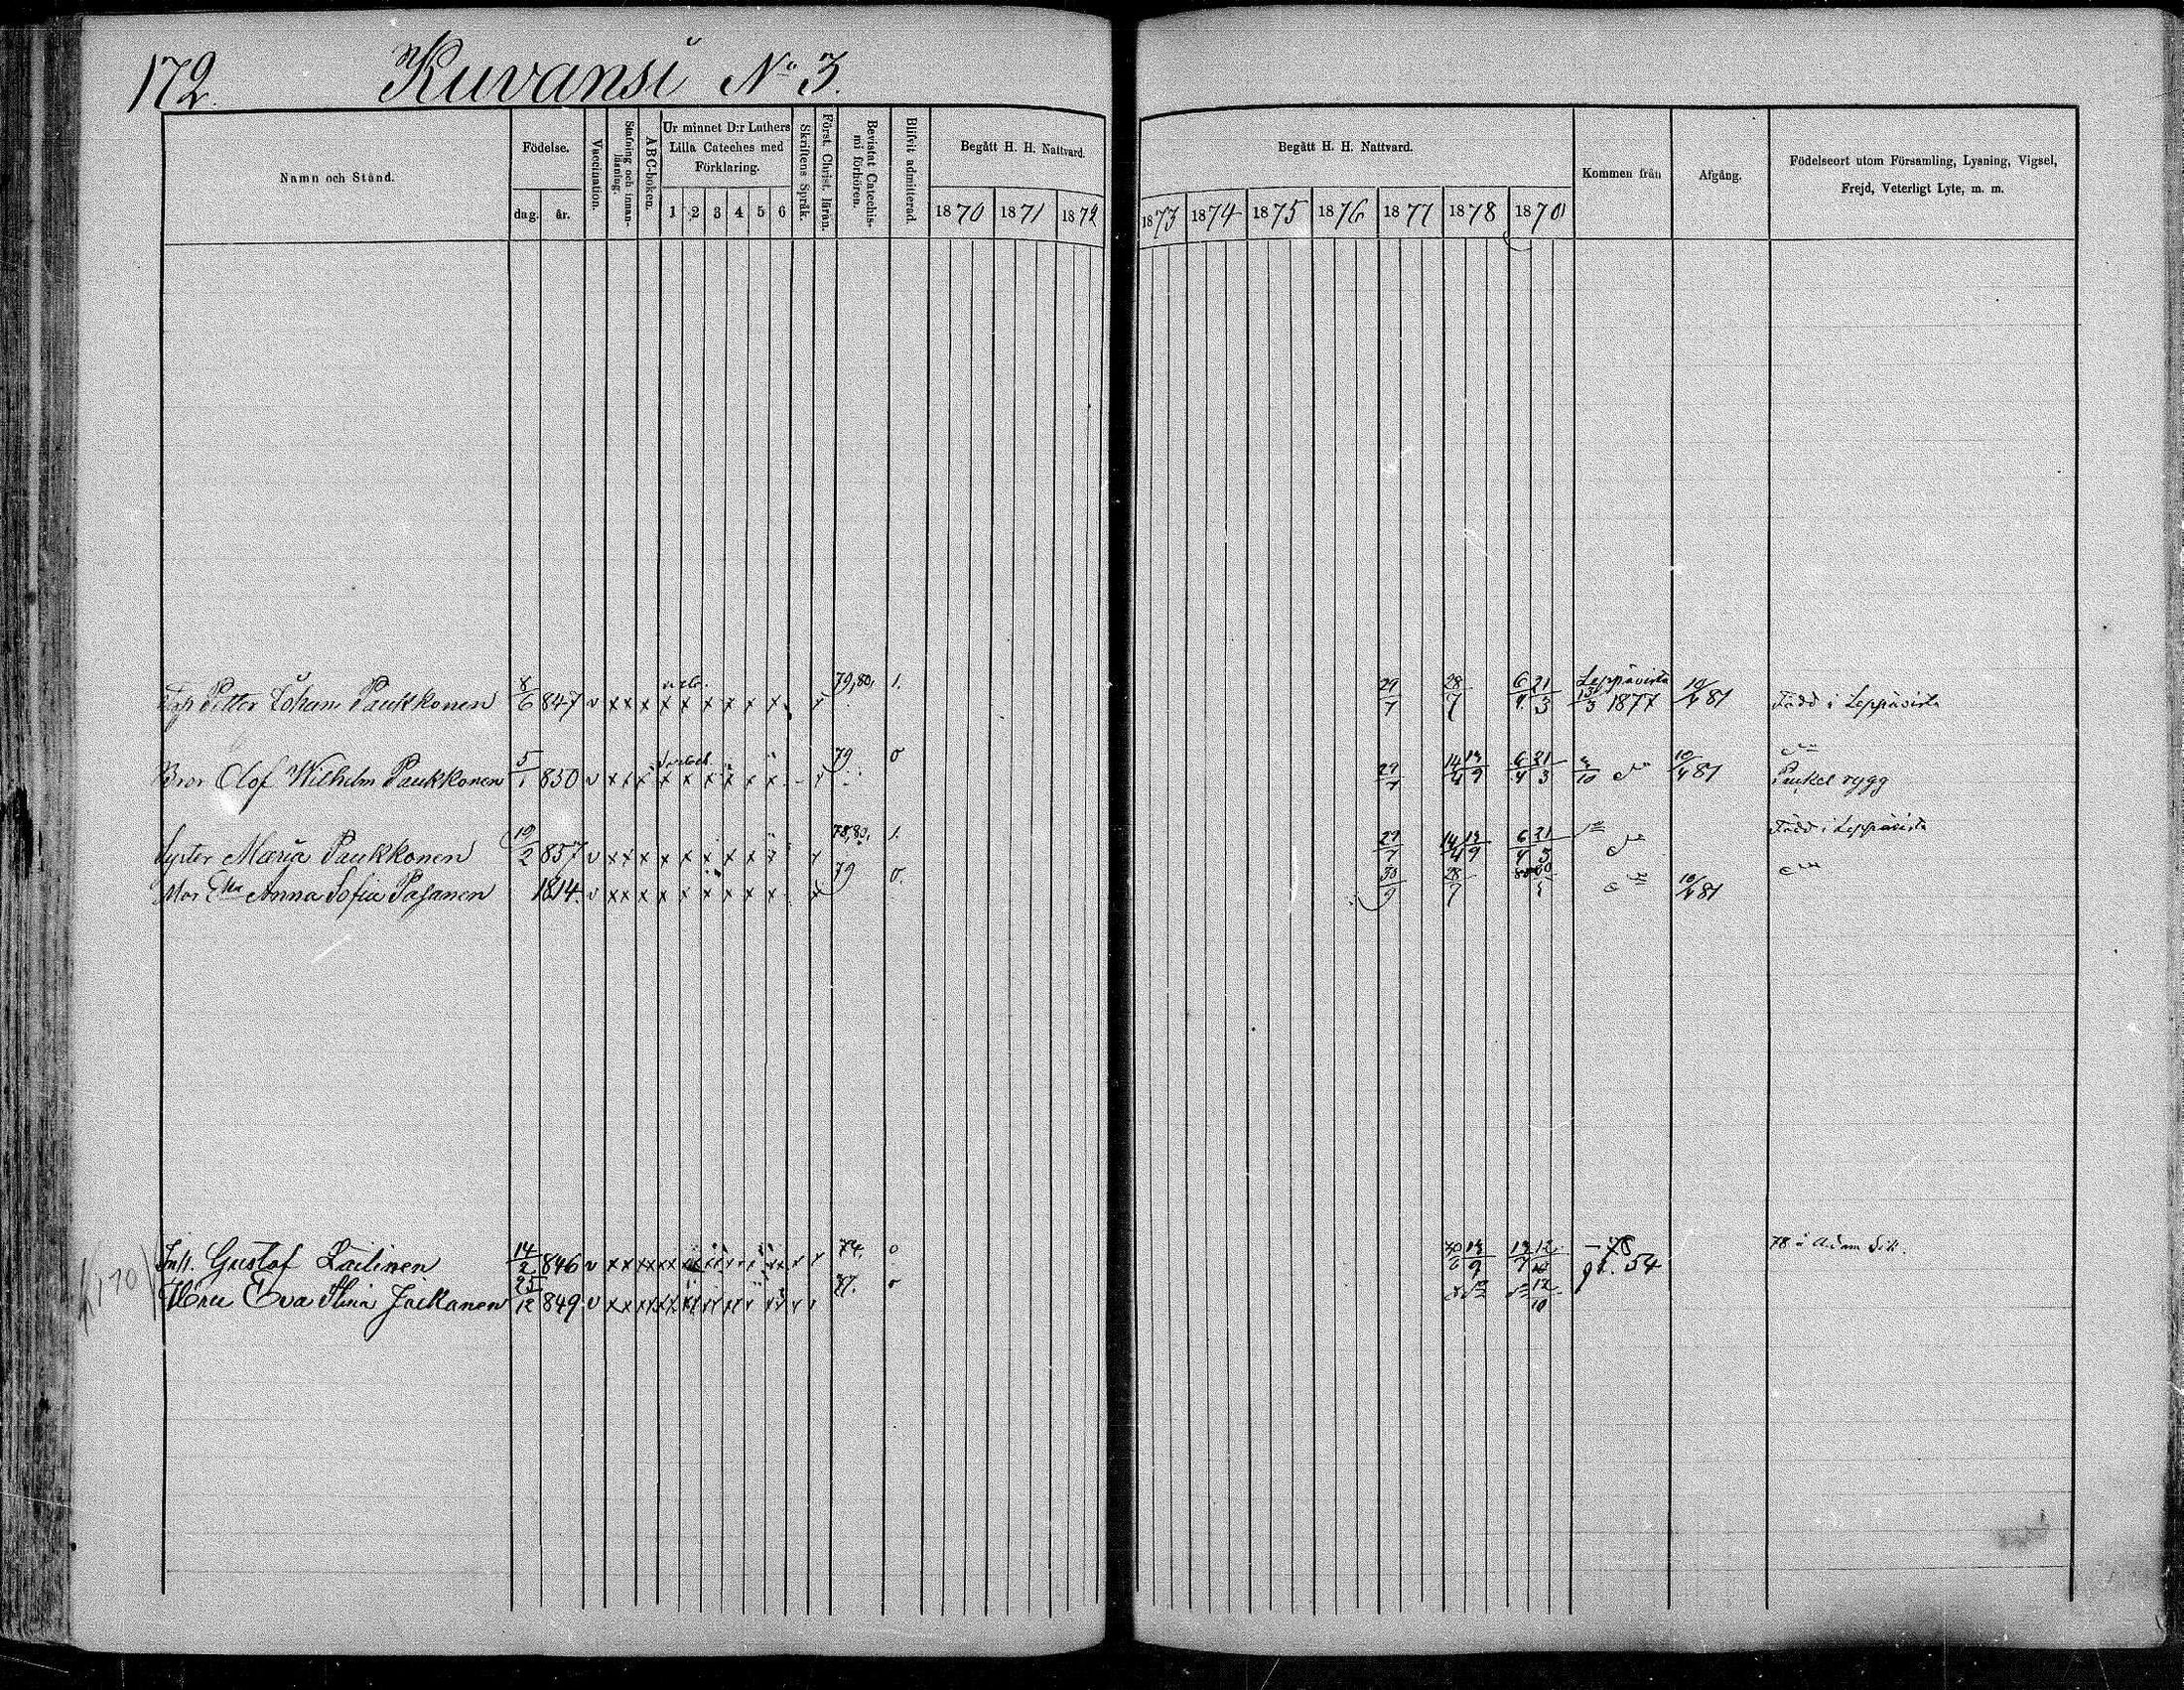 172. Kuvansi No 3.
Namn och Stånd.
Födelse.
dag. år.
Vaccination.
Stafning och innanläsning.
ABC-boken.
Ur minnet D:r Luthers
Lilla Cateches med
Förklaring.
1 2 3 4 5 6
Skriftens Språk.
Först. Christ. läran.
Bevistat Catechismi förhören.
Blifvit admitterad.
Begått H. H. Nattvard.
1870 1871 1872
Begått H. H. Nattvard.
1873 1874 1875 1876 1877 1878 1879
Kommen från
Afgång.
Födelseort utom Församling, Lysning, Vigsel,
Frejd, Veterligt Lyte, m. m.
Petter Johan Paukkonen 8/6 847 v 79,80, 1. 29/7 28/7 6/4 21/3 Leppävirta 13/3 1877 10/4 81 Född i Leppävirta
Bror Olof Wilhelm Paukkonen 5/1 850 v 79 0 29/7 14/4 19/9 6/4 21/3 10/4 81
Puckel rygg
Syster Maria Paukkonen 19/2 857 v 78,80, 1. 29/7 14/4 19/9 6/4 21/3 Född i Leppävirta
Mor Anna Sofia Pasanen 1814. v 79 0. 30/9 28/7 10/4 81
Inh. Gustaf Lailinen 14/2 846 v 74. 0 78 78 å Adam
Hru Eva Stina Jaikanen 25/12 849 v 77. 0 12/10